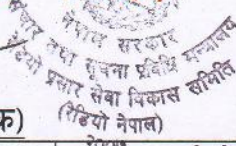 नेपाल सरकार
सञ्चार तथा सूचना प्रविधि मन्त्रालय
रेडियो प्रसार सेवा विकास समिति
(रेडियो नेपाल)
क)